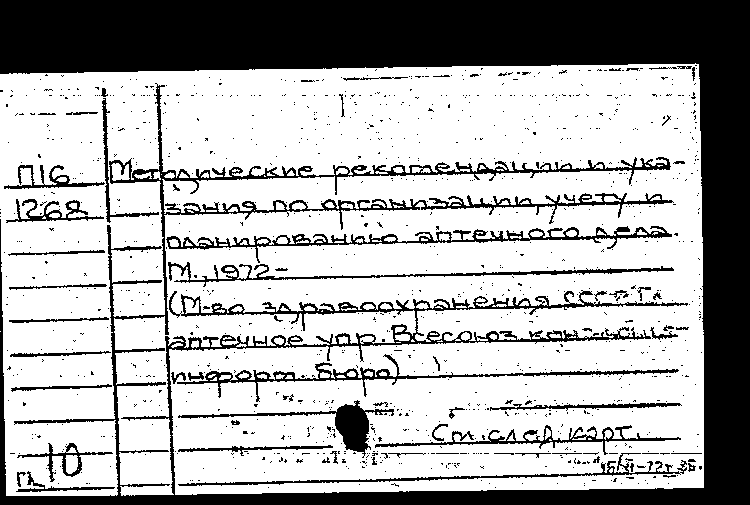 П16 Методические рекомендации и ука-
1268 зания по организации, учету и
планированию аптечного дела.
М., 1972-
(М-во здравоохранения СССР. Гл.
аптечное упр. Всесоюз.
информ. бюро)
См. след. карт.
10